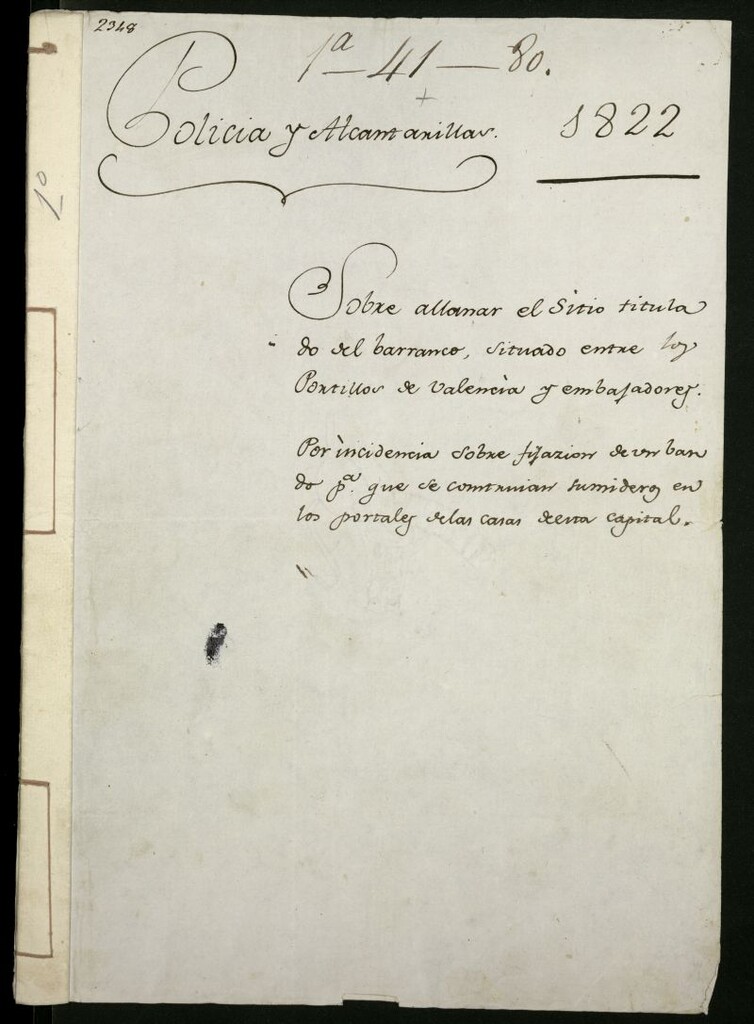 2348
1ª — 41 — 80.
+
Policia y Alcantarillas.
1822
1º
Sobre allanar el Sitio titula
do del barranco, situado entre los
Portillos de Valencia y embajadores.
Por incidencia sobre fijazion de un ban
do pª. que se construian sumideros en
los portales de las casas de esta capital.